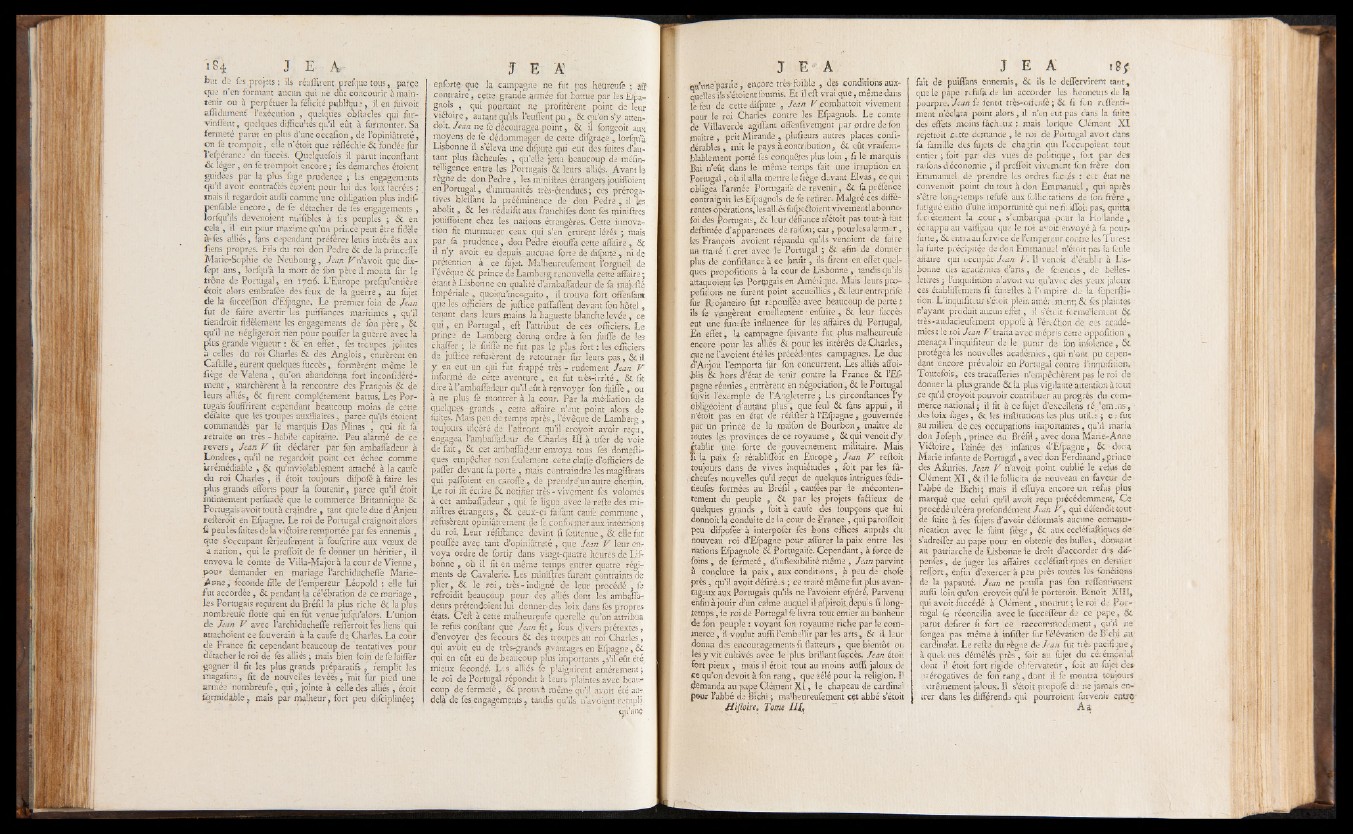 184 J E A
but de ſes projets ; ils réuſſirent preſque tous, parce
que n'en formant aucun qui ne dût concourir à main-
tenir ou à perpétuer la félicité publique, il en ſuivoit
aſſidument l'exécution, quelques obſtacles qui ſur-
vinſſent, quelques difficultés qu'il eût à ſurmonter. Sa
fermeté parut en plus d'une occaſion, de l'opiniâtreté,
on ſe trompoit, elle n'étoit que réfléchie & fondée ſur
l'eſpérance du ſuccès. Quelquefois il parut inconſtant
& léger, on ſe trompoit encore ; ſes démarches étoient
guidées par la plus ſage prudence ; les engagements
qu'il avoit contractés étoient pour lui des loix ſacrées ;
mais il regardoit auſſi comme une obligation plus indiſ-
penſable encore, de ſe détacher de ſes engagements,
lorſqu'ils devenoient nuiſibles à ſes peuples ; & en
cela, il eut pour maxime qu'un prince peut être fidèle
à ſes alliés, ſans cependant préférer leurs intérêts aux
ſiens propres. Fils du roi don Pedre & de la princeſſe
Marie-Sophie de Neubourg, Jean V n'avoit que dix-
ſept ans, lorſqu'à la mort de ſon père il monta ſur le
trône de Portugal, en 1706. L'Europe preſqu'entière
étoit alors embrâſée des feux de la guerre, au ſujet
de la ſucceſſion d'Eſpagne. Le premier ſoin de Jean
fut de faire avertir les puiſſances maritimes, qu'il
tiendroit fidèlement les engagements de ſon père, &
qu'il ne négligeroit rien pour pouſſer la guerre avec la
plus grande vigueur : & en effet, ſes troupes jointes
à celles du roi Charles & des Anglois, entrèrent en
Caſtille, eurent quelques ſuccès, formèrent même le
ſiège de Valena, qu'on abandonna fort inconſidéré-
ment, marchèrent à la rencontre des François & de
leurs alliés, & furent complètement battus. Les Por-
tugais ſouffrirent cependant beaucoup moins de cette
défaite que les troupes auxiliaires ; parce qu'ils étoient
commandés par le marquis Das Minas, qui fit ſa
retraite en très-habile capitaine. Peu alarmé de ce
revers, Jean V fit déclarer par ſon ambaſſadeur à
Londres, qu'il ne regardoit point cet échec comme
irrémédiable, & qu'inviolablement attaché à la cauſe
du roi Charles, il étoit toujours diſpoſé à faire les
plus grands efforts pour la ſoutenir, parce qu'il étoit
intimement perſuadé que le commerce Britannique &
Portugais avoit tout à craindre, tant que le duc d'Anjou
reſteroit en Eſpagne. Le roi de Portugal craignoit alors
ſi peu les ſuites de la victoire remportée par ſes ennemis,
que s'occupant ſérieuſement à ſouſcrire aux vœux de
a nation, qui le preſſoit de ſe donner un héritier, il
envoya le comte de Villa-Major à la cour de Vienne,
pour demander en mariage l'archiducheſſe Marie-
Anne, ſeconde fille de l'empereur Léopold : elle lui
fut accordée, & pendant la célébration de ce mariage,
les Portugais reçurent du Bréſil la plus riche & la plus
nombreuſe flotte qui en fût venue juſqu'alors. L'union
de Jean V avec l'archiducheſſe reſſerroit les liens qui
attachoient ce ſouverain à la cauſe de Charles. La cour
de France fit cependant beaucoup de tentatives pour
détacher le roi de ſes alliés ; mais bien loin de ſe laiſſer
gagner il fit les plus grands préparatifs, remplit les
magaſins, fit de nouvelles levées, mit ſur pied une
armée nombreuſe, qui, jointe à celle des alliés, étoit
formidable, mais par malheur, fort peu diſciplinée ;
J E A
enſorte que la campagne ne fut pas heureuſe ; au
contraire, cette grande armée fut battue par les Eſpa-
gnols, qui pourtant ne profitèrent point de leur
victoire, autant qu'ils l'euſſent pu, & qu'on s'y atten-
doit. Jean ne ſe découragea point, & il ſongeoit aux
moyens de ſe dédommager de cette diſgrace, lorſqu'à
Lisbonne il s'éleva une diſpute qui eut des ſuites d'au-
tant plus fâcheuſes, qu'elle jetta beaucoup de méſin-
telligence entre les Portugais & leurs alliés. Avant le
règne de don Pedre, les miniſtres étrangers jouiſſoient
en Portugal, d'immunités très-étendues ; ces préroga-
tives bleſſant la prééminence de don Pedre, il les
abolit, & les réduiſit aux franchiſes dont ſes miniſtres
jouiſſoient chez les nations étrangères. Cette innova-
tion fit murmurer ceux qui s'en crurent léſés ; mais
par ſa prudence, don Pedre étouffa cette affaire, &
il n'y avoit eu depuis aucune ſorte de diſpute, ni de
prétention à ce ſujet. Malheureuſement l'orgueil de
l'évêque & prince de Lamberg renouvella cette affaire ;
étant à Lisbonne en qualité d'ambaſſadeur de ſa majeſté
Impériale, quoiqu'incognito, il trouva fort offenſant
que les officiers de juſtice paſſaſſent devant ſon hôtel,
tenant dans leurs mains la baguette blanche levée, ce
qui, en Portugal, eſt l'attribut de ces officiers. Le
prince de Lamberg donna ordre à ſon ſuiſſe de les
chaſſer ; le ſuiſſe ne fut pas le plus fort : les officiers
de juſtice refuſèrent de retourner ſur leurs pas, & il
y en eut un qui fut frappé très-rudement. Jean V
informé de cette aventure, en fut très-irrité, & fit
dire à l'ambaſſadeur qu'il eût à renvoyer ſon ſuiſſe, ou
à ne plus ſe montrer à la cour. Par la médiation de
quelques grands, cette affaire n'eut point alors de
ſuites. Mais peu de temps après, l'évêque de Lamberg,
toujours ulcéré de l'affront qu'il croyoit avoir reçu,
engagea l'ambaſſadeur de Charles III à uſer de voie
de fait, & cet ambaſſadeur envoya tous ſes domeſti-
ques empêcher non ſeulement cette claſſe d'officiers de
paſſer devant ſa porte, mais contraindre les magiſtrats
qui paſſoient en caroſſe, de prendre un autre chemin.
Le roi fit écrire & notifier très-vivement ſes volontés
à cet ambaſſadeur, qui ſe ligua avec le reſte des mi-
niſtres étrangers, & ceux-ci faiſant cauſe commune,
refuſèrent opiniâtrement de ſe conformer aux intentions
du roi. Leur réſiſtance devint ſi ſoutenue, & elle fut
pouſſée avec tant d'opiniâtreté, que Jean V leur en-
voya ordre de ſortir dans vingt-quatre heures de Liſ-
bonne, où il fit en même temps entrer quatre régi-
ments de Cavalerie. Les miniſtres furent contraints de
plier, & le roi, très-indigné de leur procédé, ſe
refroidit beaucoup pour des alliés dont les ambaſſa-
deurs prétendoient lui donner des loix dans ſes propres
états. C'eſt à cette malheureuſe querelle qu'on attribua
le refus conſtant que Jean fit, ſous divers prétextes,
d'envoyer des ſecours & des troupes au roi Charles,
qui avoit eu de très-grands avantages en Eſpagne, &
qui en eût eu de beaucoup plus importants, s'il eût été
mieux ſecondé. Les alliés ſe plaignirent amèrement ;
le roi de Portugal répondit à leurs plaintes avec beau-
coup de fermeté, & prouva même qu'il avoit été au-
delà de ſes engagements, tandis qu'ils n'avoient rempli
qu'une
J E A
qu'une partie, encore très-foible, des conditions aux-
quelles ils s'étoient ſoumis. Et il eſt vrai que, même dans
le feu de cette diſpute, Jean V combattoit vivement
pour le roi Charles contre les Eſpagnols. Le comte
de Villaverde agiſſant offenſivement par ordre de ſon
maître, prit Mirande, pluſieurs autres places conſi-
dérables, mit le pays à contribution, & eût vraiſem-
blablement porté ſes conquêtes plus loin, ſi le marquis
Bai n'eût dans le même temps fait une irruption en
Portugal, où il alla mettre le ſiège devant Elvas, ce qui
obligea l'armée Portugaiſe de revenir, & ſa préſence
contraignit les Eſpagnols de ſe retirer. Malgré ces diffé-
rentes opérations, les alliés ſuſpectoient vivement la bonne-
foi des Portugais, & leur défiance n'étoit pas tout-à-fait
deſtituée d'apparences de raiſon ; car, pour les alarmer,
les François avoient répandu qu'ils venoient de faire
un traité ſecret avec le Portugal ; & afin de donner
plus de conſiſtance à ce bruit, ils firent en effet quel-
ques propoſitions à la cour de Lisbonne, tandis qu'ils
attaquoient les Portugais en Amérique. Mais leurs pro-
poſitions ne furent point accueillies, & leur entrepriſe
ſur Riojaneiro fut repouſſée avec beaucoup de perte :
ils ſe vengèrent cruellement enſuite, & leur ſuccès
eut une funeſte influence ſur les affaires du Portugal.
En effet, la campagne ſuivante fut plus malheureuſe
encore pour les alliés & pour les intérêts de Charles,
que ne l'avoient été les précédentes campagnes. Le duc
d'Anjou l'emporta ſur ſon concurrent. Les alliés affoi-
blis & hors d'état de tenir contre la France & l'Eſ-
pagne réunies, entrèrent en négociation, & le Portugal
ſuivit l'exemple de l'Angleterre ; les circonſtances l'y
obligeoient d'autant plus, que ſeul & ſans appui, il
n'étoit pas en état de réſiſter à l'Eſpagne, gouvernée
par un prince de la maiſon de Bourbon, maître de
toutes les provinces de ce royaume, & qui venoit d'y
établir une forte de gouvernement militaire. Mais
ſi la paix ſe rétabliſſoit en Europe, Jean V reſtoit
toujours dans de vives inquiétudes, ſoit par les fâ-
cheuſes nouvelles qu'il reçut de quelques intrigues ſédi-
tieuſes formées au Bréſil, cauſées par le mécontentement
du peuple, & par les projets factieux de
quelques grands, ſoit à cauſe des ſoupçons que lui
donnoit la conduite de la cour de France, qui paroiſſoit
peu diſpoſée à interpoſer ſes bons offices auprès du
nouveau roi d'Eſpagne pour aſſurer la paix entre les
nations Eſpagnole & Portugaiſe. Cependant, à force de
ſoins, de fermeté, d'inflexibilité même, Jean parvint
à conclure la paix, aux conditions, à peu de choſe
près, qu'il avoit déſirées ; ce traité même fut plus avan-
tageux aux Portugais qu'ils ne l'avoient eſpéré. Parvenu
enfin à jouir d'un calme auquel il aſpiroit depuis ſi long-
temps, le roi de Portugal ſe livra tout entier au bonheur
de ſon peuple : voyant ſon royaume riche par le com-
merce, il voulut auſſi l'embellir par les arts, & il leur
donna des encouragements ſi flatteurs, que bientôt on
les y vit cultivés avec le plus brillant ſuccès. Jean étoit
fort pieux, mais il étoit tout au moins auſſi jaloux de
ce qu'on devoit à ſon rang, que zélé pour la religion. Il
demanda au pape Clément XI, le chapeau de cardinal
pour l'abbé de Bichi ; malheureuſement cet abbé s'étoit
Hiſtoire. Tome III.
J E A 185
fait de puiſſans ennemis, & ils le deſſervirent tant,
que le pape refuſa de lui accorder les honneurs de la
pourpre. Jean ſe tenoit très-offenſé ; & ſi ſon reſſenti-
ment n'éclata point alors, il n'en eut pas dans la ſuite
des effets moins fâcheux : mais lorſque Clément XI
rejettoit cette demande, le roi de Portugal avoit dans
ſa famille des ſujets de chagrin qui l'occupoient tout
entier ; ſoit par des vues de politique, ſoit par des
raiſons d'économie, il preſſoit vivement ſon frère don
Emmanuel de prendre les ordres ſacrés : cet état ne
convenoit point du tout à don Emmanuel, qui après
s'être long-temps refuſé aux ſollicitations de ſon frère,
fatigué enfin d'une importunité qui ne finiſſoit pas, quitta
ſecrètement la cour, s'embarqua pour la Hollande,
échappa au vaiſſeau que le roi avoit envoyé à ſa pour-
ſuite, & entra au ſervice de l'empereur contre les Turcs :
la fuite précipitée de don Emmanuel n'étoit pas la ſeule
affaire qui occupât Jean V. Il venoit d'établir à Liſ-
bonne des académies d'arts, de ſciences, de belles-
lettres ; l'inquiſition n'avoit vu qu'avec des yeux jaloux
ces établiſſements ſi funeſtes à l'empire de la ſuperſti-
tion. L'inquiſiteur s'étoit plein amèrement ; & ſes plaintes
n'ayant produit aucun effet, il s'étoit formellement &
très-audacieuſement oppoſé à l'érection de ces acadé-
mies : le roi Jean V traita avec mépris cette oppoſition,
menaça l'inquiſiteur de le punir de ſon inſolence, &
protégea les nouvelles académies, qui n'ont pu cepen-
dant encore prévaloir en Portugal contre l'inquiſition.
Toutefois, ces tracaſſeries n'empêchèrent pas le roi de
donner la plus grande & la plus vigilante attention à tout
ce qu'il croyoit pouvoir contribuer au progrès du com-
merce national ; il fit à ce ſujet d'excellens réglemens,
des loix ſages, & les inſtitutions les plus utiles ; ce fut
au milieu de ces occupations importantes, qu'il maria
don Joſeph, prince du Bréſil, avec dona Marie-Anne
Victoire, l'aînée des infantes d'Eſpagne, & dona
Marie infante de Portugal, avec don Ferdinand, prince
des Aſturies. Jean V n'avoit point oublié le refus de
Clément XI, & il le ſollicita de nouveau en faveur de
l'abbé de Bichi ; mais il eſſuya encore un refus plus
marqué que celui qu'il avoit reçu précédemment. Ce
procédé ulcéra profondément Jean V, qui défendit tout
de ſuite à ſes ſujets d'avoir déſormais aucune commu-
nication avec le ſaint ſiège, & aux eccléſiaſtiques de
s'adreſſer au pape pour en obtenir des bulles, donnant
au patriarche de Lisbonne le droit d'accorder des diſ-
penſes, de juger les affaires eccléſiaſtiques en dernier
reſſort, enfin d'exercer à peu près toutes les fonctions
de la papauté. Jean ne pouſſa pas ſon reſſentiment
auſſi loin qu'on croyoit qu'il le porteroit. Benoît XIII,
qui avoit ſuccédé à Clément, mourut ; le roi de Por-
tugal ſe réconcilia avec le ſucceſſeur de ce pape, &
parut deſirer ſi fort ce raccommodement, qu'il ne
ſongea pas même à inſiſter ſur l'élévation de Bichi au
cardinalat. Le reſte du règne de Jean fut très-pacifique,
à quelques démêlés près, ſoit au ſujet du cérémonial
dont il étoit fort rigide obſervateur, ſoit au ſujet des
prérogatives de ſon rang, dont il ſe montra toujours
extrêmement jaloux. Il s'étoit propoſé de ne jamais en-
trer dans les différends qui pourroient ſurvenir entre
A a